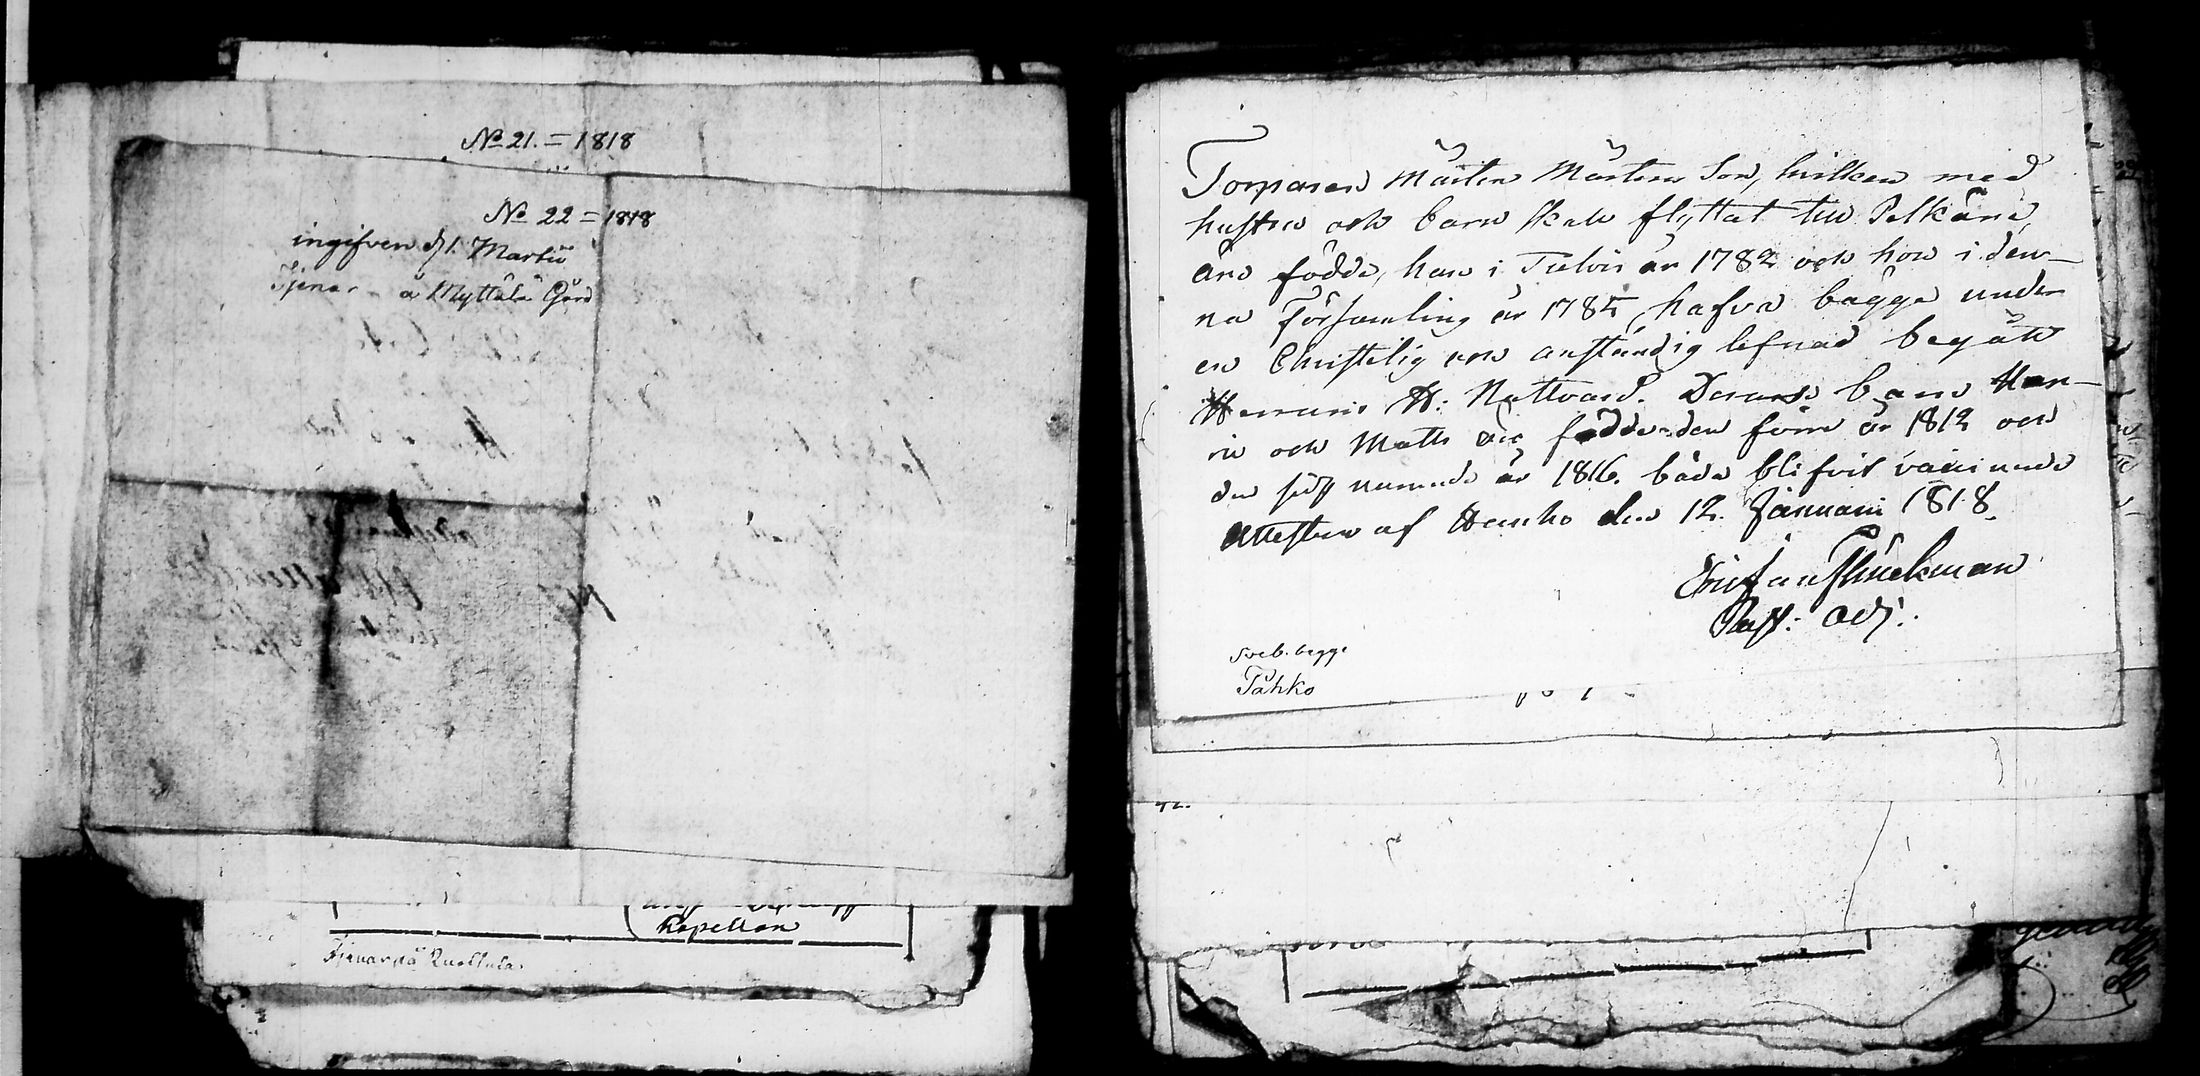 No 21. = 1818
No 22 = 1818
ingifven d 1. Martii
Tjenar å Myttälä Gård
Kapellan
Tjenar på
Torparen Mårten Mårtens Son, hvilken med
hustru och barn skall flyttat till Pelkäne,
äro födde, han i Tulois år 1782 och hon i den-
na Församling år 1785, hafva bägge under
en Christelig och anständig lefnad begått
Herrans H: Nattvard. Deras barn
och Matts äro födde den förre år 1812 och
den sist nämnde år 1816. båda blifvit vaccinerade
Attesteras af Hauho den 12. Januarii 1818.
Past: Adj:
begge
Tähkö